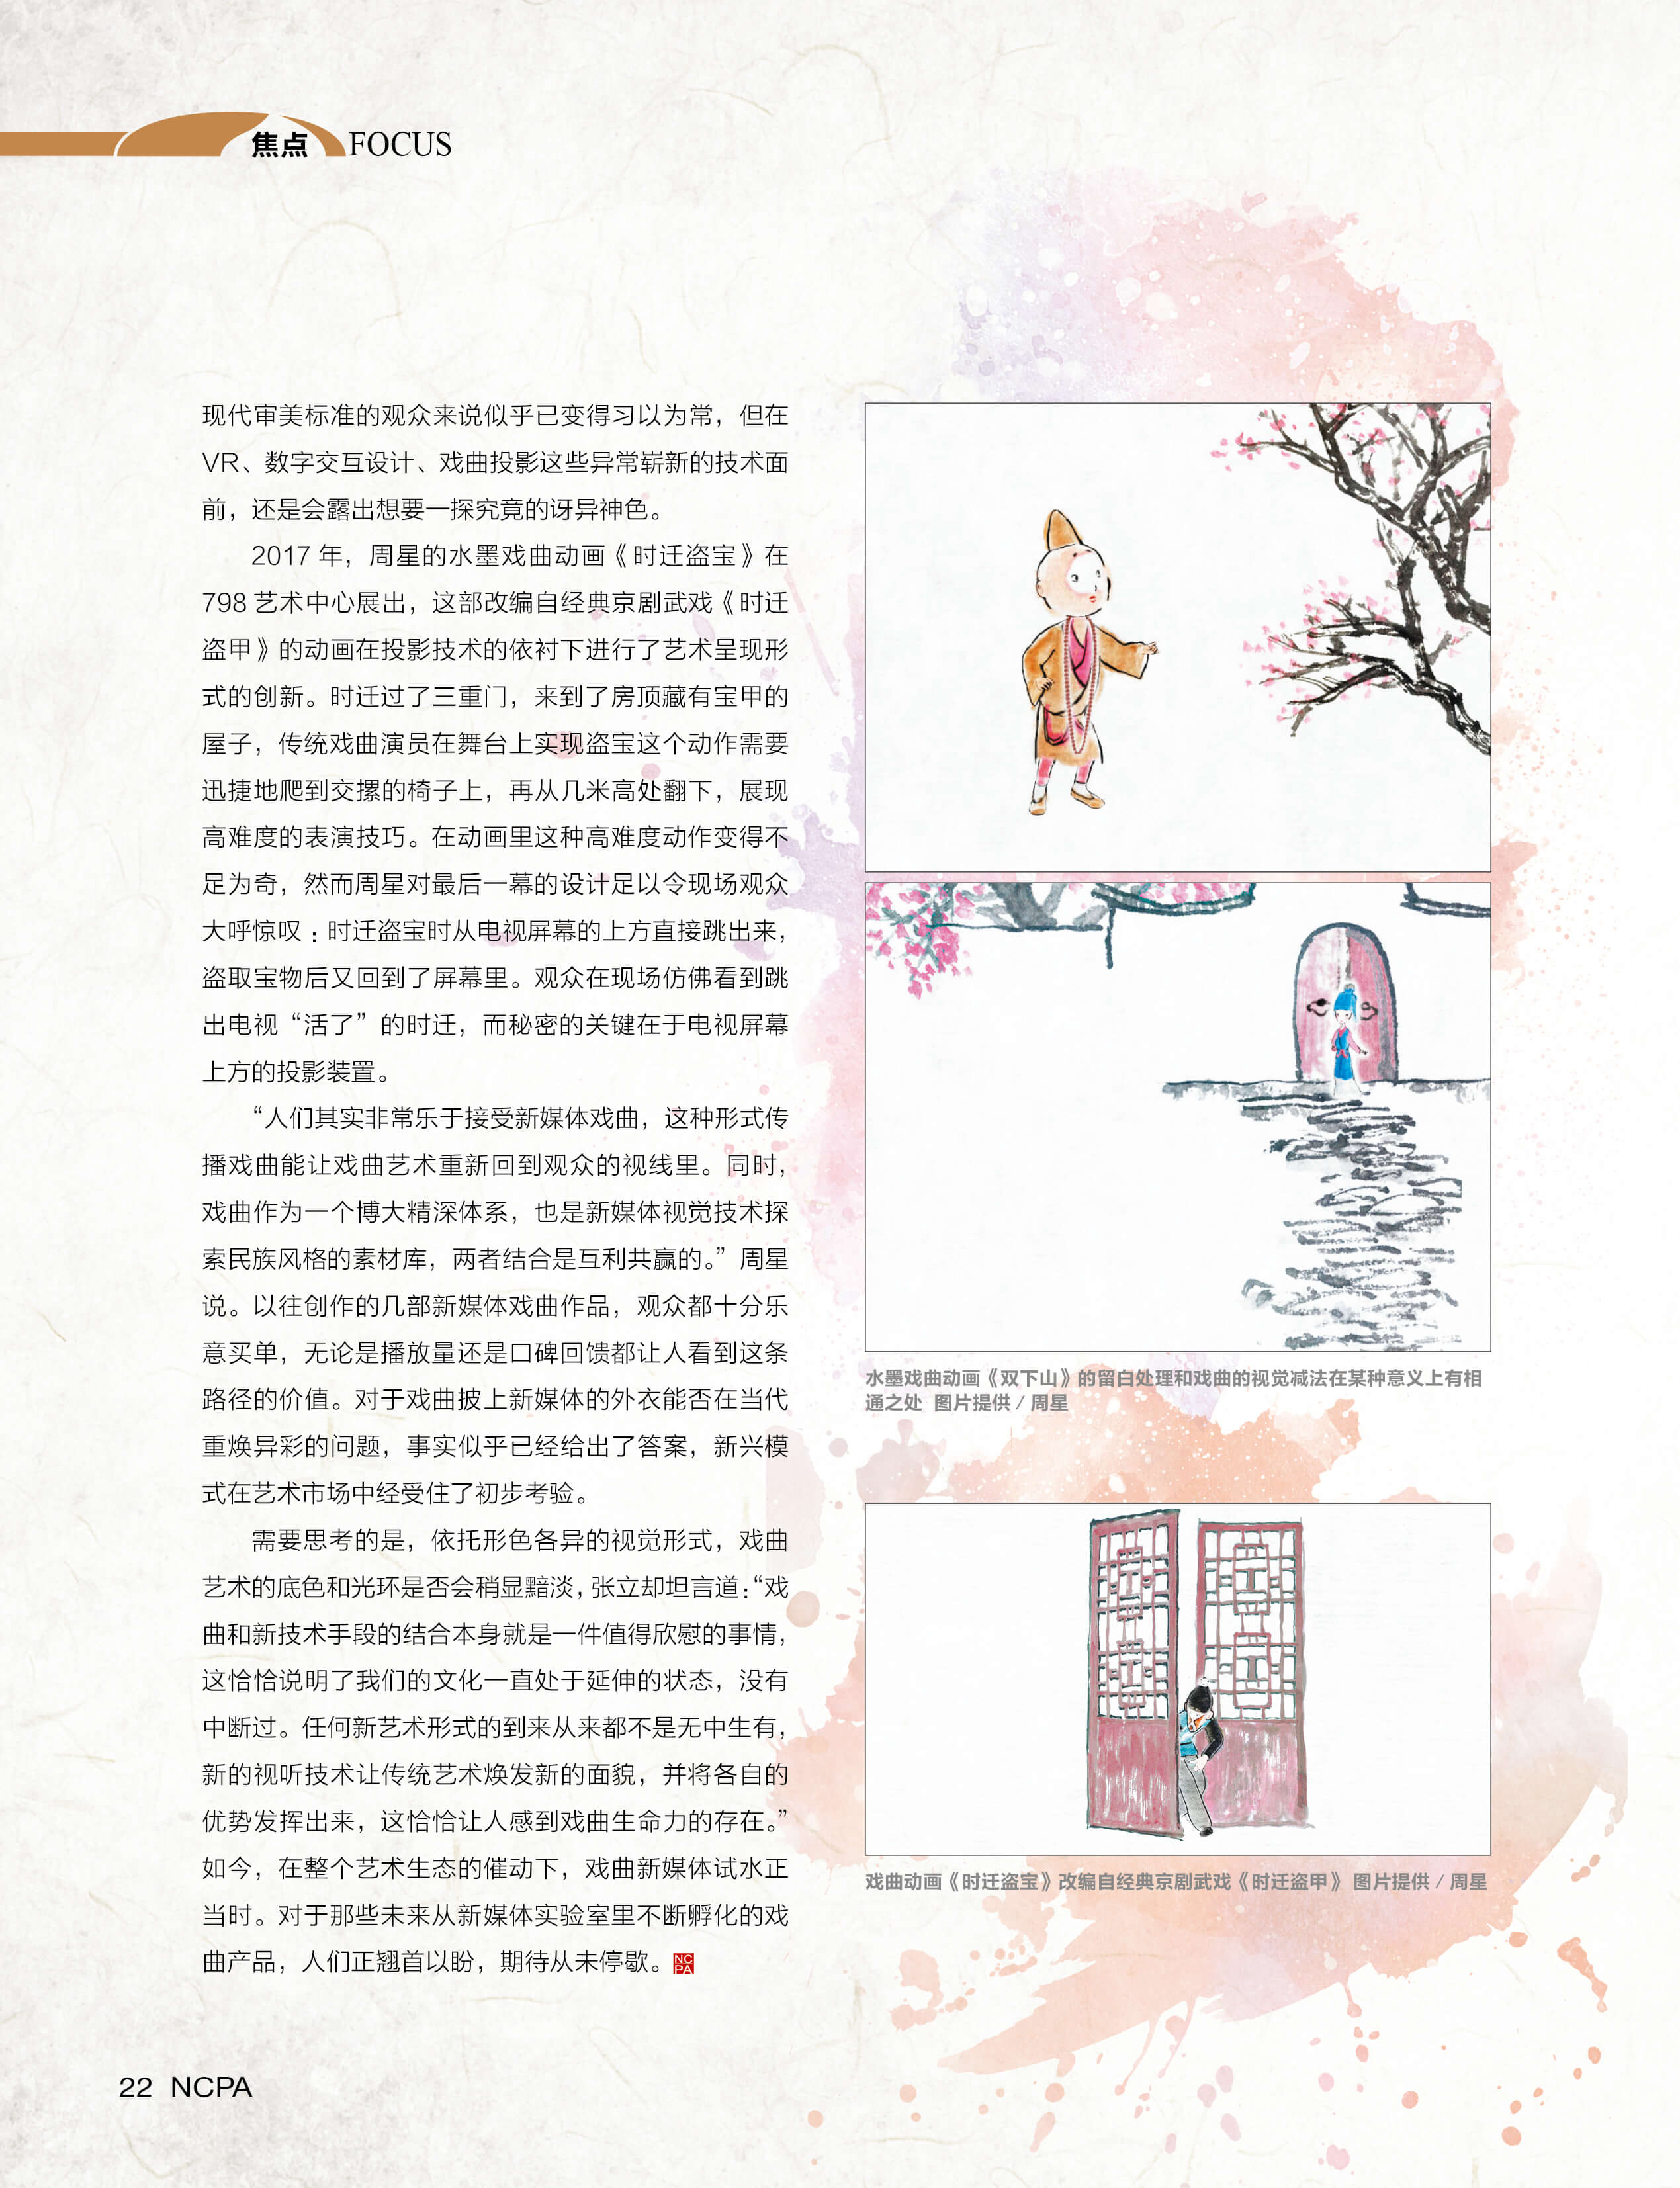 焦点 FOCUS
现代审美标准的观众来说似乎已变得习以为常，但在
VR、数字交互设计、戏曲投影这些异常崭新的技术面
前，还是会露出想要一探究竟的讶异神色。
2017 年，周星的水墨戏曲动画《时迁盗宝》在
798 艺术中心展出，这部改编自经典京剧武戏《时迁
盗甲》的动画在投影技术的依衬下进行了艺术呈现形
式的创新。时迁过了三重门，来到了房顶藏有宝甲的
屋子，传统戏曲演员在舞台上实现盗宝这个动作需要
迅捷地爬到交摞的椅子上，再从几米高处翻下，展现
高难度的表演技巧。在动画里这种高难度动作变得不
足为奇，然而周星对最后一幕的设计足以令现场观众
大呼惊叹：时迁盗宝时从电视屏幕的上方直接跳出来，
盗取宝物后又回到了屏幕里。观众在现场仿佛看到跳
出电视“活了”的时迁，而秘密的关键在于电视屏幕
上方的投影装置。
“人们其实非常乐于接受新媒体戏曲，这种形式传
播戏曲能让戏曲艺术重新回到观众的视线里。同时，
戏曲作为一个博大精深体系，也是新媒体视觉技术探
索民族风格的素材库，两者结合是互利共赢的。”周星
说。以往创作的几部新媒体戏曲作品，观众都十分乐
意买单，无论是播放量还是口碑回馈都让人看到这条
路径的价值。对于戏曲披上新媒体的外衣能否在当代
重焕异彩的问题，事实似乎已经给出了答案，新兴模
式在艺术市场中经受住了初步考验。
需要思考的是，依托形色各异的视觉形式，戏曲
艺术的底色和光环是否会稍显黯淡，张立却坦言道：“戏
曲和新技术手段的结合本身就是一件值得欣慰的事情，
这恰恰说明了我们的文化一直处于延伸的状态，没有
中断过。任何新艺术形式的到来从来都不是无中生有，
新的视听技术让传统艺术焕发新的面貌，并将各自的
优势发挥出来，这恰恰让人感到戏曲生命力的存在。”
如今，在整个艺术生态的催动下，戏曲新媒体试水正
当时。对于那些未来从新媒体实验室里不断孵化的戏
曲产品，人们正翘首以盼，期待从未停歇。NCPA
水墨戏曲动画《双下山》的留白处理和戏曲的视觉减法在某种意义上有相
通之处 图片提供 / 周星
戏曲动画《时迁盗宝》改编自经典京剧武戏《时迁盗甲》 图片提供 / 周星
22 NCPA